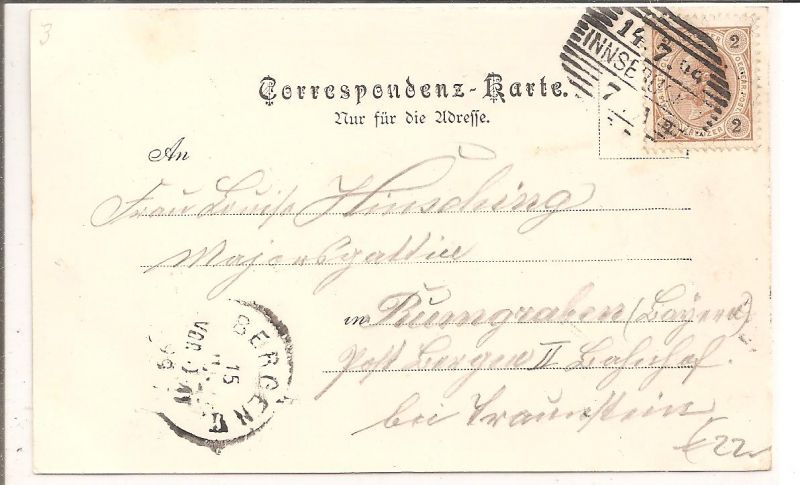 3
14.7.99
INNSBRUCK
7
2
2
Correspondenz-Karte.
Nur für die Adresse.
An
Frau Louise Hinsching
Majorsgattin
in Rumgraben (Bayern)
Post Bergen II Bahnhof.
bei Traunstein
BERGEN II
15
VOR.
99
22